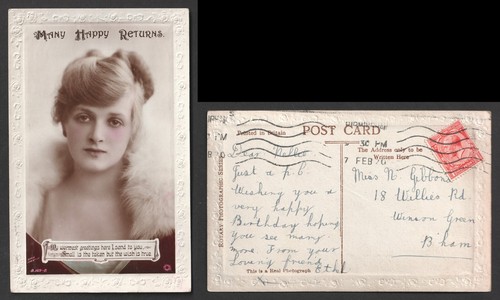 MANY HAPPY RETURNS.
My warmest greetings here I send to you,
Small is the token but the wish is true.
Printed in Britain
POST CARD
The Address only to be
Written Here
ROTARY PHOTOGRAPHIC SERIES
30 PM
7 FEB
Dear Nellie
Just a p.c.
Wishing you a
very happy
Birthday hoping
you see many
more From your
Loving friend
Ethel
x
This is a Real Photograph
Miss N. Gibbons
18 Willies Rd.
Winson Green
B'ham